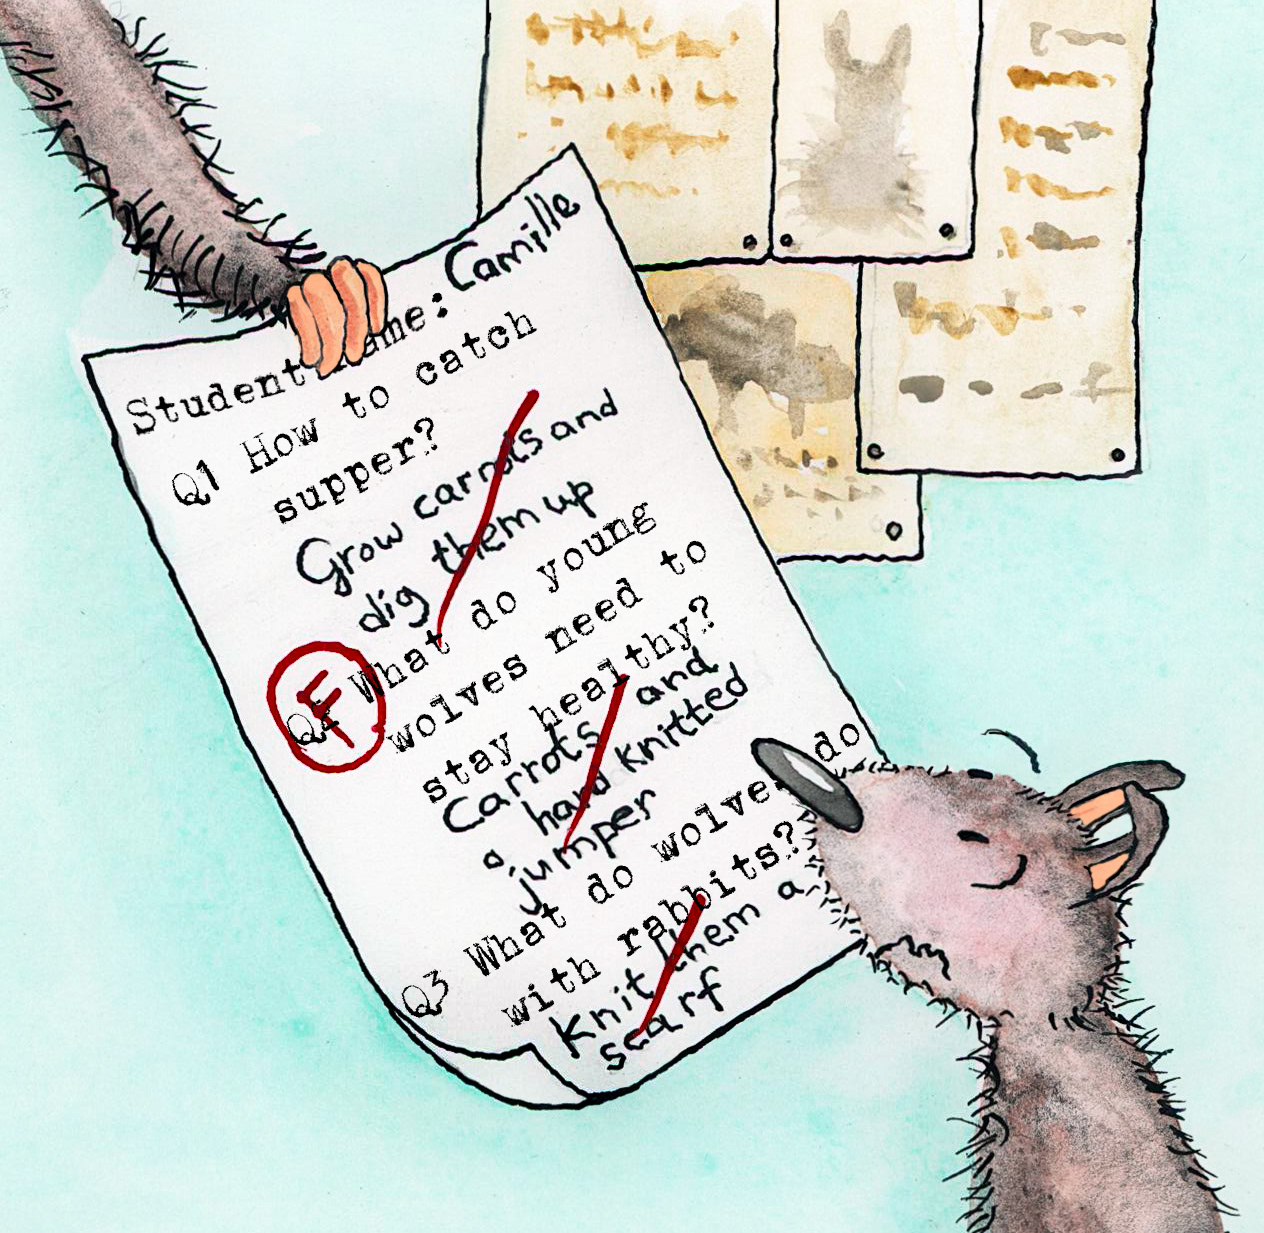 Student name: Camille
Q1 How to catch
supper?
Grow carrots and
dig them up
Q2 What do young
wolves need to
stay healthy?
Carrots and
a hand knitted
jumper
F
Q3 What do wolves do
with rabbits?
Knit them a
scarf